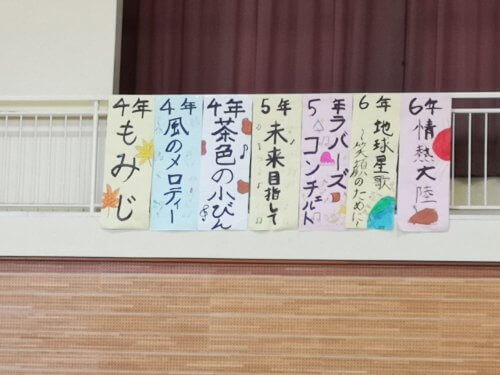 4年
もみじ
4年
風のメロディー
4年
茶色の小びん
5年
未来目指して
5年
ラバーズコンチェルト
6年
地球星歌
～笑顔のために～
6年
情熱大陸